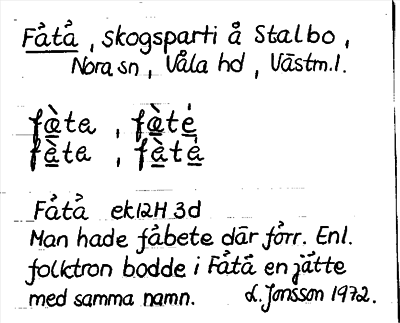 Fåtå, skogsparti å Stalbo,
Nora sn, Våla hd, Västm.l.
fàta, fàté
fèta, fàtá
Fåtå ek12H 3d
Man hade fåbete där förr. Enl.
folktron bodde i Fåtå en jätte
med samma namn. L. Jonsson 1972.